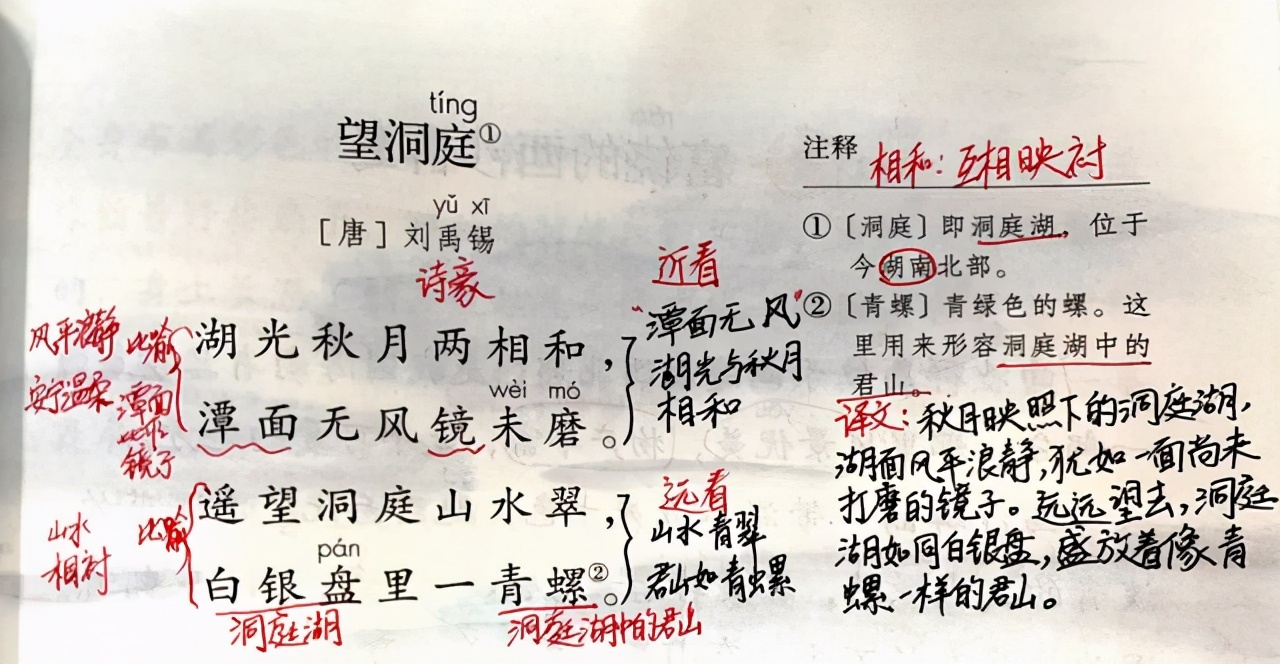 tíng
望洞庭①
yǔ xī
［唐］刘禹锡
诗豪
风平浪静
安宁温柔
比喻
潭面
比作
镜子
湖光秋月两相和，
wèi mó
潭面无风镜未磨。
近看
“潭面无风”
湖光与秋月
相和
山水
相衬
比喻
遥望洞庭山水翠，
pán
白银盘里一青螺②。
洞庭湖
洞庭湖中的君山
远看
山水青翠
君山如青螺
注释
相和：互相映衬
①〔洞庭〕即洞庭湖，位于
今湖南北部。
②〔青螺〕青绿色的螺。这
里用来形容洞庭湖中的
君山。
译文：秋月映照下的洞庭湖，
湖面风平浪静，犹如一面尚未
打磨的镜子。远远望去，洞庭
湖如同白银盘，盛放着像青
螺一样的君山。